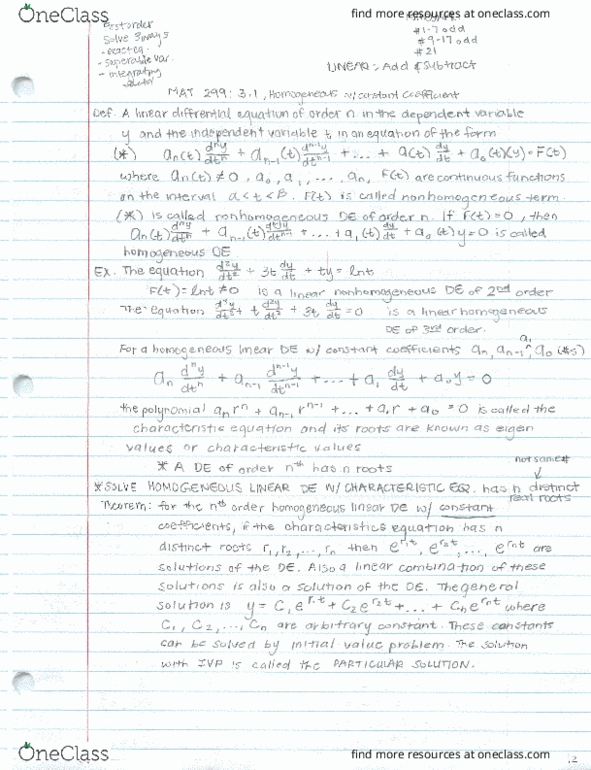 OneClass
find more resources at oneclass.com
1st order
Solve 3 ways
- exact eq.
- seperable var.
- integrating
#1-7 odd
#9-17 odd
#21
LINEAR = Add & subtract
MAT 299: 3.1, Homogeneous w/ constant coefficient
Def. A linear diffrential equation of order n in the dependent variable
y and the independent variable t, in an equation of the form
(*) an(t) dⁿy/dtⁿ + an-1(t) dⁿ⁻¹y/dtⁿ⁻¹ + ... + a(t) dy/dt + a0(t)(y) = F(t)
where an(t) ≠ 0, a0, a1, ... an, F(t) are continuous functions
on the interval α < t < β. F(t) is called nonhomogeneous term.
(*) is called nonhomogeneous DE of order n. If F(t) = 0, then
an(t) dⁿy/dtⁿ + an-1(t) dⁿ⁻¹y/dtⁿ⁻¹ + ... + a1(t) dy/dt + a0(t) y = 0 is called
homogeneous DE.
Ex. The equation d²y/dt² + 3t dy/dt + ty = lnt
F(t) = lnt ≠ 0 is a linear nonhomogeneous DE of 2nd order
The equation + t d²y/dt² + 3t dy/dt = 0 is a linear homogeneous
DE of 3rd order.
For a homogeneous linear DE w/ constant coefficients an, an-1, a1, a0 (#s)
an dⁿy/dtⁿ + an-1 dⁿ⁻¹y/dtⁿ⁻¹ + ... + a1 dy/dt + a0y = 0
the polynomial anrⁿ + an-1 rⁿ⁻¹ + ... + a1r + a0 = 0 is called the
characteristic equation and its roots are known as eigen
values or characteristic values
* A DE of order nth has n roots
not same #
*SOLVE HOMOGENEOUS LINEAR DE W/ CHARACTERISTIC EQ. has n distinct
real roots
Theorem: for the nth order homogeneous linear DE w/ constant
coefficients, if the characteristics equation has n
distinct roots r1, r2, ..., rn then e^r1t, e^r2t, ..., e^rnt are
solutions of the DE. Also a linear combination of these
solutions is also a solution of the DE. The general
solution is y = C1e^r1t + C2e^r2t + ... + Cne^rnt where
C1, C2, ..., Cn are arbitrary constant. These constants
can be solved by initial value problem. The solution
with IVP is called the PARTICULAR SOLUTION.
OneClass
find more resources at oneclass.com